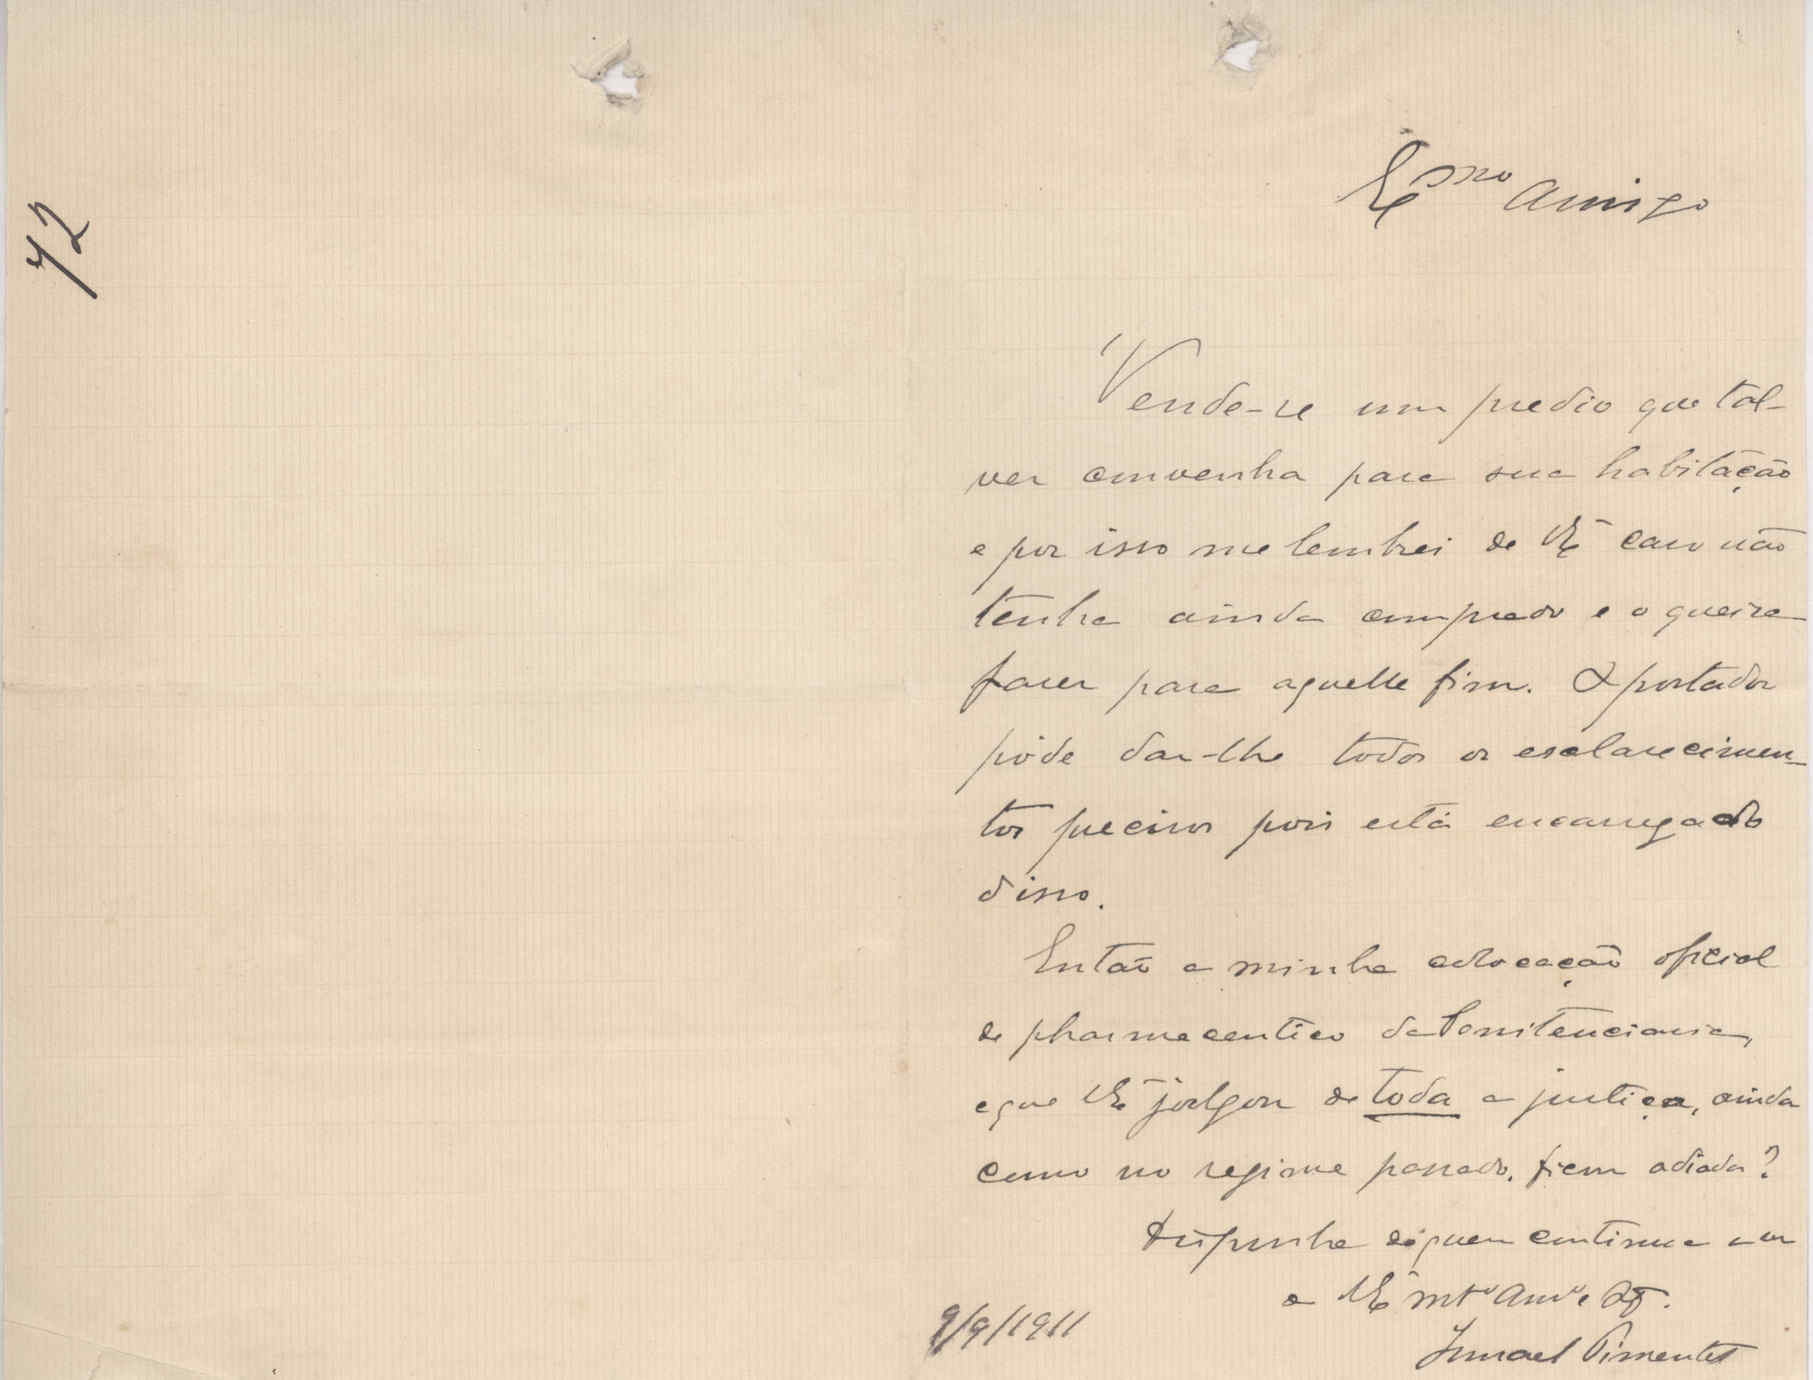 72
Exmo amigo
Vende-se um predio que tal-
vez convenha para sua habitação
e por isso me lembrei de VE caso não
tenha ainda comprado e o queira
fazer para aquelle fim. O portador
póde dar-lhe todos os esclarecimen-
tos precisos pois está encarregado
disso.
Então a minha collocação oficial
de pharmaceutico da Penitenciaria,
e que VE julgou de toda a justiça, ainda
como no regimen passado, ficou adiada?
Disponha de quem continua a ser
de VE mto amo e
9/9/1911
Ismael Pimentel